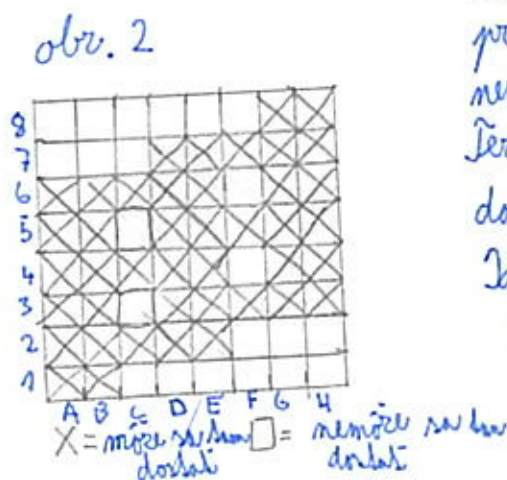 obr. 2
8
7
6
5
4
3
2
1
A B C D E F G H
X = môže sa tam dostať □ = nemôže sa tam dostať